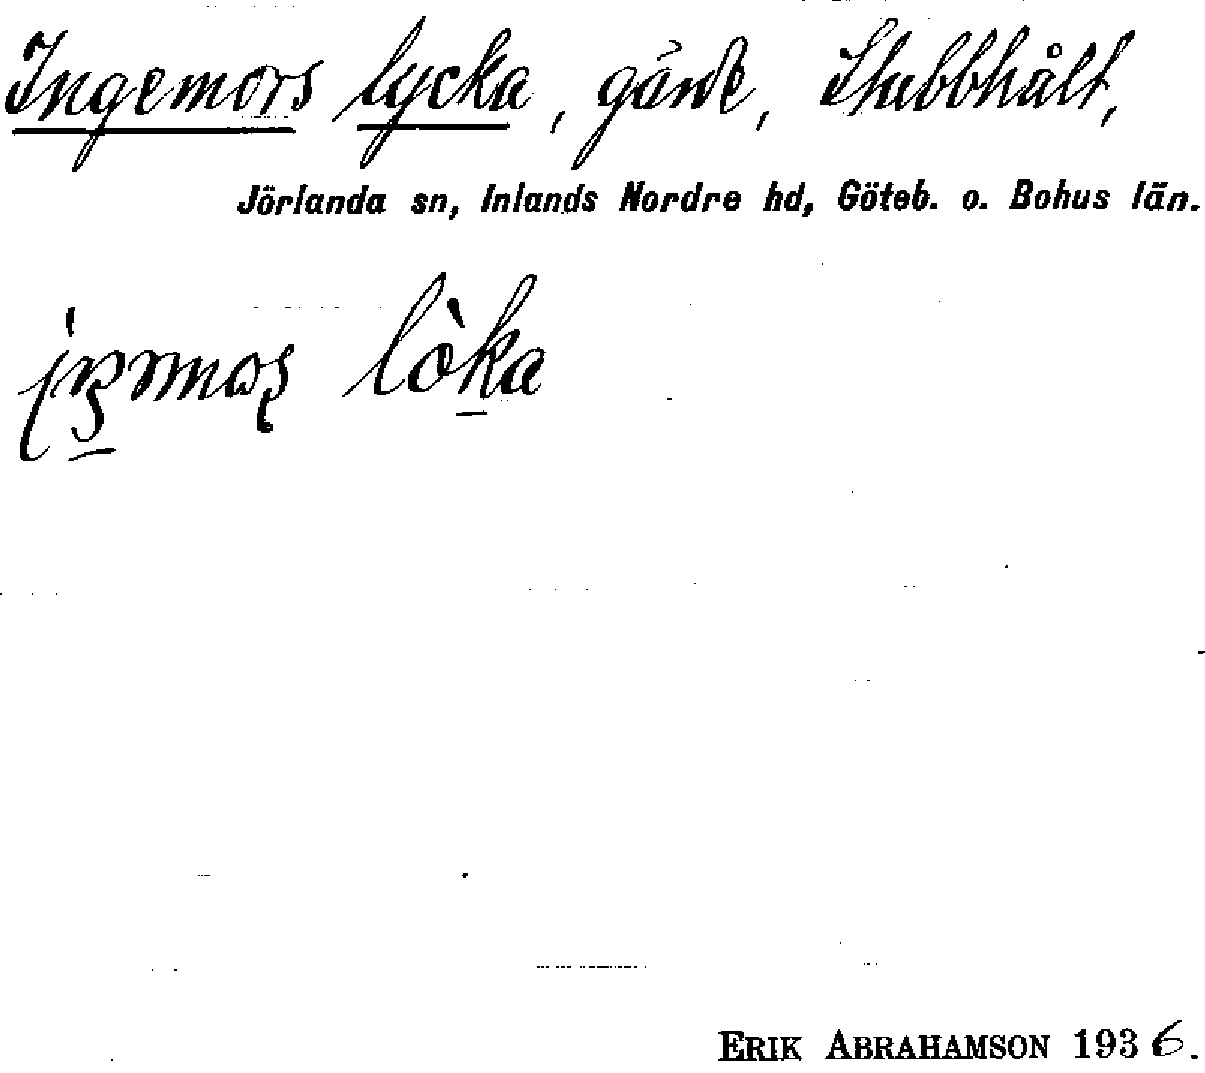 Ingemors lycka, gärde, Stubbhält,
Jörlanda sn, Inlands Nordre hd, Göteb. o. Bohus län.
lòka
ERIK ABRAHAMSON 1936.